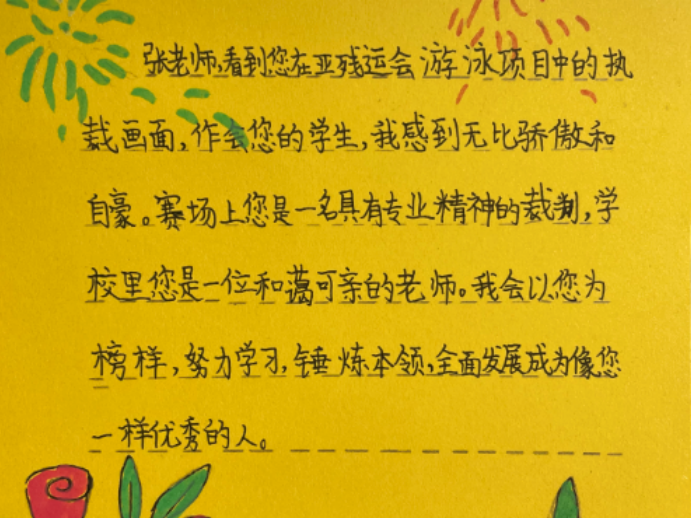 张老师,看到您在亚残运会游泳项目中的执
裁画面,作为您的学生,我感到无比骄傲和
自豪。赛场上您是一名具有专业精神的裁判,学
校里您是一位和蔼可亲的老师。我会以您为
榜样,努力学习,锤炼本领,全面发展成为像您
一样优秀的人。